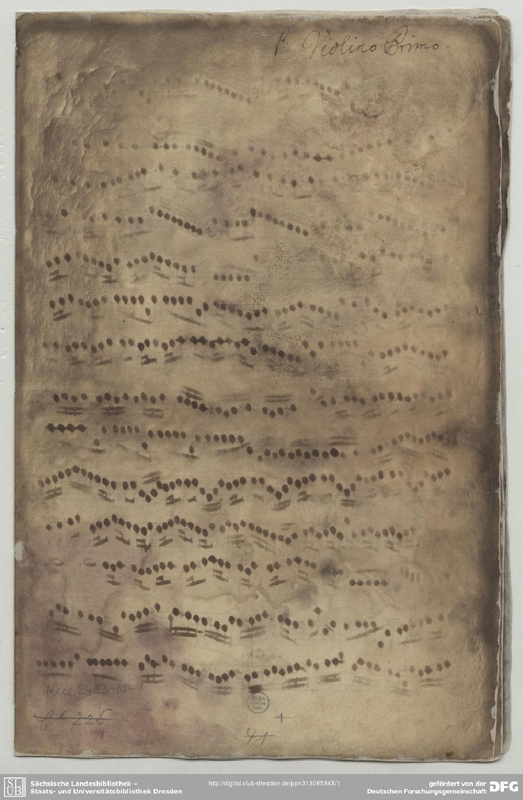 Violino Primo.
Mus. 2483-N-
1
44
SLUB
Sächsische Landesbibliothek –
Staats- und Universitätsbibliothek Dresden
http://digital.slub-dresden.de/ppn31308534X/1
gefördert von der
Deutschen Forschungsgemeinschaft
DFG